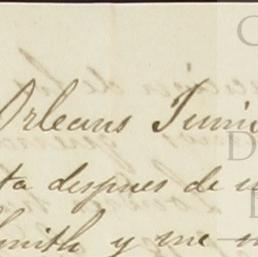 Orleans Junio
ta despues de u
Smith y me